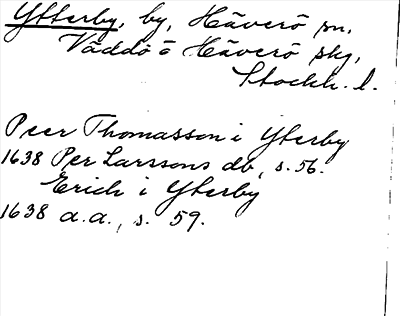 Ytterby, by, Häverö sn,
Väddö o Häverö skg,
Stockh. l.
Peer Thomasson i Ytterby
1638 Per Larssons db, s. 56.
Erich i Ytterby
1638 a.a., s. 59.